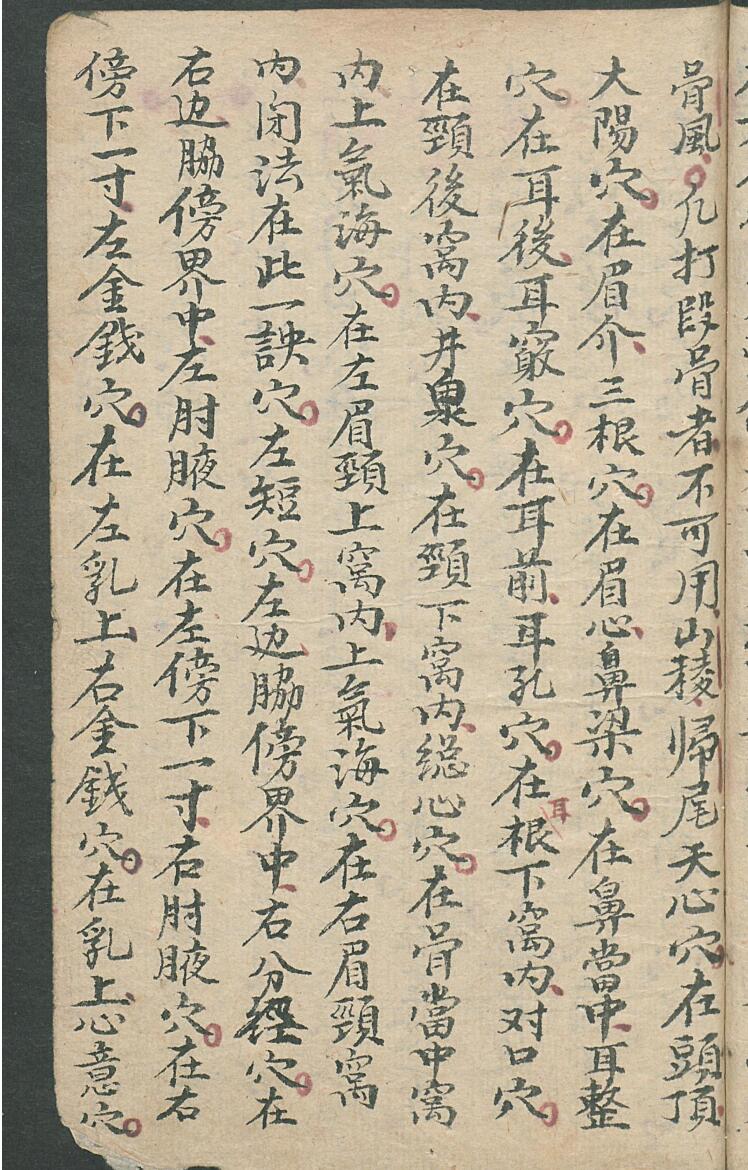 骨風。凢打段骨者不可用山稜、歸尾天心穴。在頭頂
大陽穴。在眉介、三根穴。在眉心、鼻梁穴。在鼻當中、耳整
穴在耳後、耳竅穴。在耳前、耳孔穴。在耳根下窩内、对口穴。
在頸後窩内、井泉穴。在頸下窩内、総心穴。在骨當中窩
内、上氣海穴。在左眉頸上窩内、上氣海穴。在右眉頸窩
内、閉法在此一諛穴。左短穴。左边脇傍界中、右分經穴。在
右边脇傍界中、左肘腋穴。在左傍下一寸、右肘腋穴。在右
傍下一寸、左金銭穴。在左乳上右金銭穴。在乳上、心意穴。